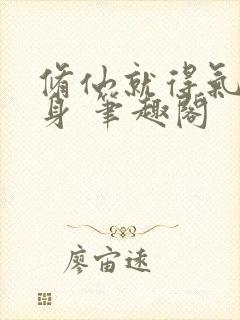 脩仙就得氣
身 筆趣閣
廖宙遠